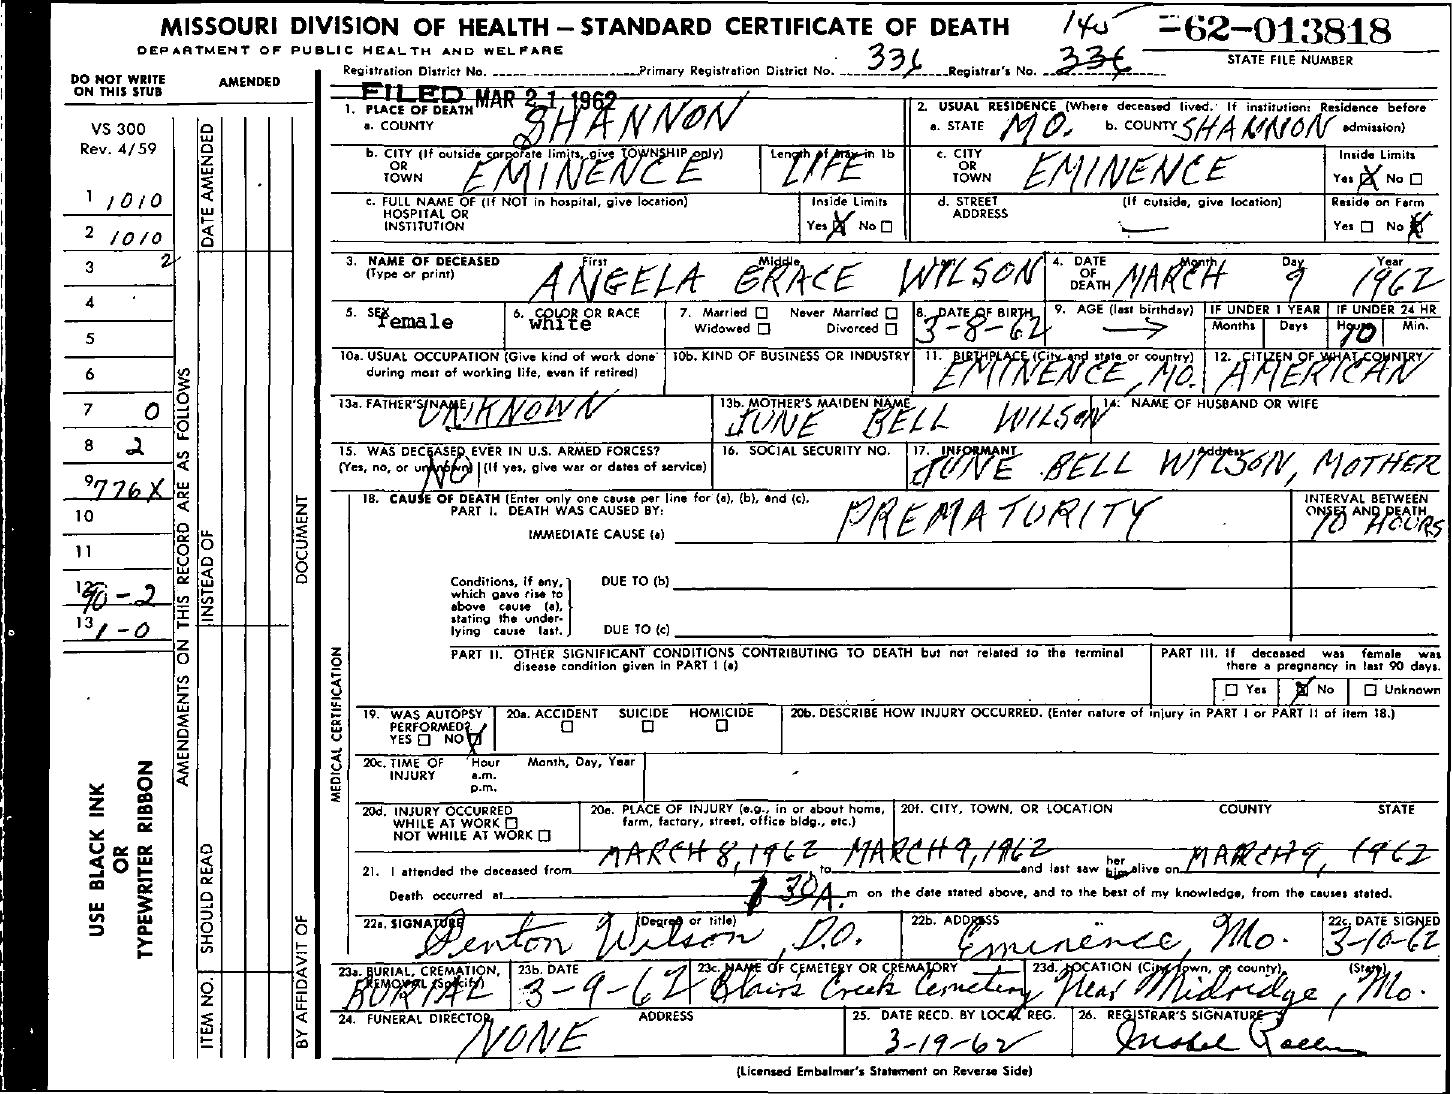 MISSOURI DIVISION OF HEALTH — STANDARD CERTIFICATE OF DEATH 145 -62-013818
DEPARTMENT OF PUBLIC HEALTH AND WELFARE
STATE FILE NUMBER
Registration District No. Primary Registration District No. 336 Registrar's No. 336
DO NOT WRITE ON THIS STUB
AMENDED
FILED MAR 21 1962
VS 300
Rev. 4/59
1 1010
2 1010
3 2
4
5
6
7 0
8 2
9 776X
10
11
12 90-2
13 1-0
USE BLACK INK OR TYPEWRITER RIBBON
AMENDMENTS ON THIS RECORD ARE AS FOLLOWS
DATE AMENDED
INSTEAD OF
SHOULD READ
ITEM NO.
DOCUMENT
BY AFFIDAVIT OF
MEDICAL CERTIFICATION
1. PLACE OF DEATH
a. COUNTY SHANNON
2. USUAL RESIDENCE (Where deceased lived. If institution: Residence before admission)
a. STATE MO. b. COUNTY SHANNON
b. CITY (If outside corporate limits, give TOWNSHIP only) OR TOWN EMINENCE
Length of stay in 1b LIFE
c. CITY OR TOWN EMINENCE
Inside Limits Yes X No
c. FULL NAME OF (If NOT in hospital, give location) HOSPITAL OR INSTITUTION
Inside Limits Yes X No
d. STREET ADDRESS (If outside, give location) —
Reside on Farm Yes No X
3. NAME OF DECEASED (Type or print) First Middle Last ANGELA GRACE WILSON
4. DATE OF DEATH Month Day Year MARCH 9 1962
5. SEX female
6. COLOR OR RACE white
7. Married Never Married Widowed Divorced
8. DATE OF BIRTH 3-8-62
9. AGE (last birthday)
IF UNDER 1 YEAR Months Days
IF UNDER 24 HR Hours 10 Min.
10a. USUAL OCCUPATION (Give kind of work done during most of working life, even if retired)
10b. KIND OF BUSINESS OR INDUSTRY
11. BIRTHPLACE (City and state or country) EMINENCE, MO.
12. CITIZEN OF WHAT COUNTRY AMERICAN
13a. FATHER'S NAME UNKNOWN
13b. MOTHER'S MAIDEN NAME JUNE BELL WILSON
14. NAME OF HUSBAND OR WIFE
15. WAS DECEASED EVER IN U.S. ARMED FORCES? (Yes, no, or unknown) (If yes, give war or dates of service) NO
16. SOCIAL SECURITY NO.
17. INFORMANT Address JUNE BELL WILSON, MOTHER
18. CAUSE OF DEATH (Enter only one cause per line for (a), (b), and (c).
PART I. DEATH WAS CAUSED BY:
IMMEDIATE CAUSE (a) PREMATURITY
INTERVAL BETWEEN ONSET AND DEATH 10 HOURS
Conditions, if any, which gave rise to above cause (a), stating the underlying cause last.
DUE TO (b)
DUE TO (c)
PART II. OTHER SIGNIFICANT CONDITIONS CONTRIBUTING TO DEATH but not related to the terminal disease condition given in PART I (a)
PART III. If deceased was female was there a pregnancy in last 90 days.
Yes X No Unknown
19. WAS AUTOPSY PERFORMED? YES NO X
20a. ACCIDENT SUICIDE HOMICIDE
20b. DESCRIBE HOW INJURY OCCURRED. (Enter nature of injury in PART I or PART II of item 18.)
20c. TIME OF INJURY Hour a.m. p.m. Month, Day, Year
20d. INJURY OCCURRED WHILE AT WORK NOT WHILE AT WORK
20e. PLACE OF INJURY (e.g., in or about home, farm, factory, street, office bldg., etc.)
20f. CITY, TOWN, OR LOCATION COUNTY STATE
21. I attended the deceased from MARCH 8, 1962 to MARCH 9, 1962 and last saw her him alive on MARCH 9, 1962
Death occurred at 1:30 A. m on the date stated above, and to the best of my knowledge, from the causes stated.
22a. SIGNATURE (Degree or title) Denton Wilson, D.O.
22b. ADDRESS Eminence, Mo.
22c. DATE SIGNED 3-10-62
23a. BURIAL, CREMATION, REMOVAL (Specify) BURIAL
23b. DATE 3-9-62
23c. NAME OF CEMETERY OR CREMATORY Blair's Creek Cemetery
23d. LOCATION (City, town, or county) (State) Near Midridge, Mo.
24. FUNERAL DIRECTOR ADDRESS NONE
25. DATE RECD. BY LOCAL REG. 3-19-62
26. REGISTRAR'S SIGNATURE
(Licensed Embalmer's Statement on Reverse Side)